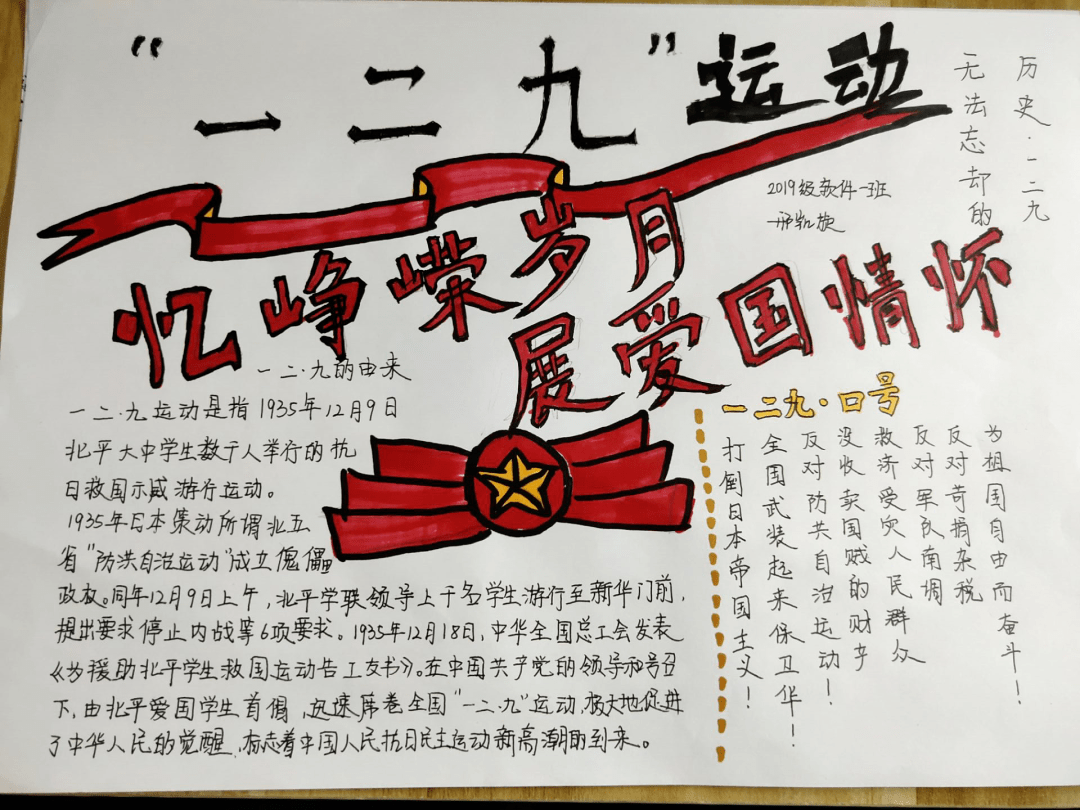 “一二九”运动
历史·一二九
无法忘却的
2019级软件一班
邢凯旋
忆峥嵘岁月
展爱国情怀
一二·九的由来
一二·九运动是指1935年12月9日
北平大中学生数千人举行的抗
日救国示威游行运动。
1935年日本策动所谓北五
省“防洪自治运动”成立傀儡
政权。同年12月9日上午，北平学联领导上千名学生游行至新华门前，
提出要求停止内战等6项要求。1935年12月18日，中华全国总工会发表
《为援助北平学生救国运动告工友书》。在中国共产党的领导和号召
下，由北平爱国学生首倡，迅速席卷全国“一二·九”运动，极大地促进
了中华人民的觉醒，标志着中国人民抗日民主运动新高潮的到来。
一二九·口号
为祖国自由而奋斗！
反对苛捐杂税
反对军队南调
救济受灾人民群众
没收卖国贼的财产
反对防共自治运动！
全国武装起来保卫华！
打倒日本帝国主义！